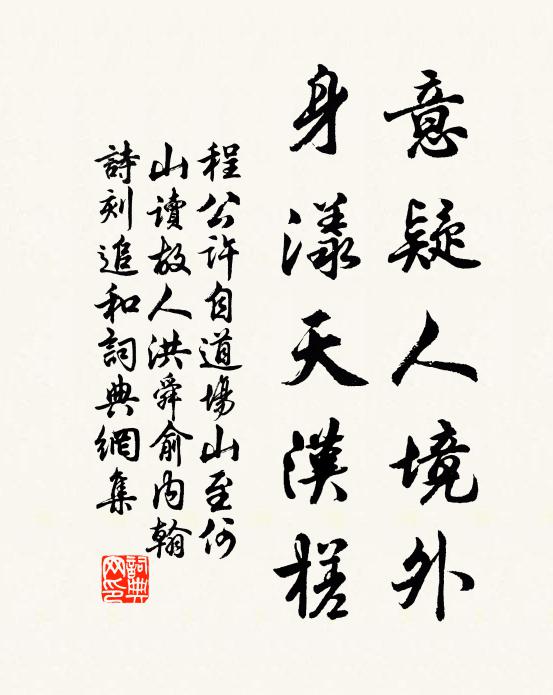 意疑人境外
身漾天漢槎
程公許自道場山至何
山讀故人洪舜俞內翰
詩刻追和詞典網集
詞典網印